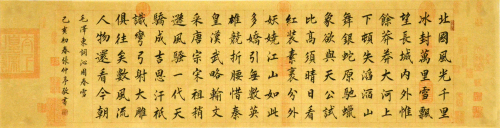 北國風光千里
冰封萬里雪飄
望長城内外惟
餘莽莽大河上
下頓失滔滔山
舞銀蛇原馳蠟
象欲與天公試
比高須晴日看
紅裝素裹分外
妖嬈江山如此
多嬌引無數英
雄競折腰惜秦
皇漢武略輸文
采唐宗宋祖稍
遜風騷一代天
驕成吉思汗祇
識彎弓射大雕
俱往矣數風流
人物還看今朝
毛澤東詞沁園春雪
己亥初春張仲亭敬書